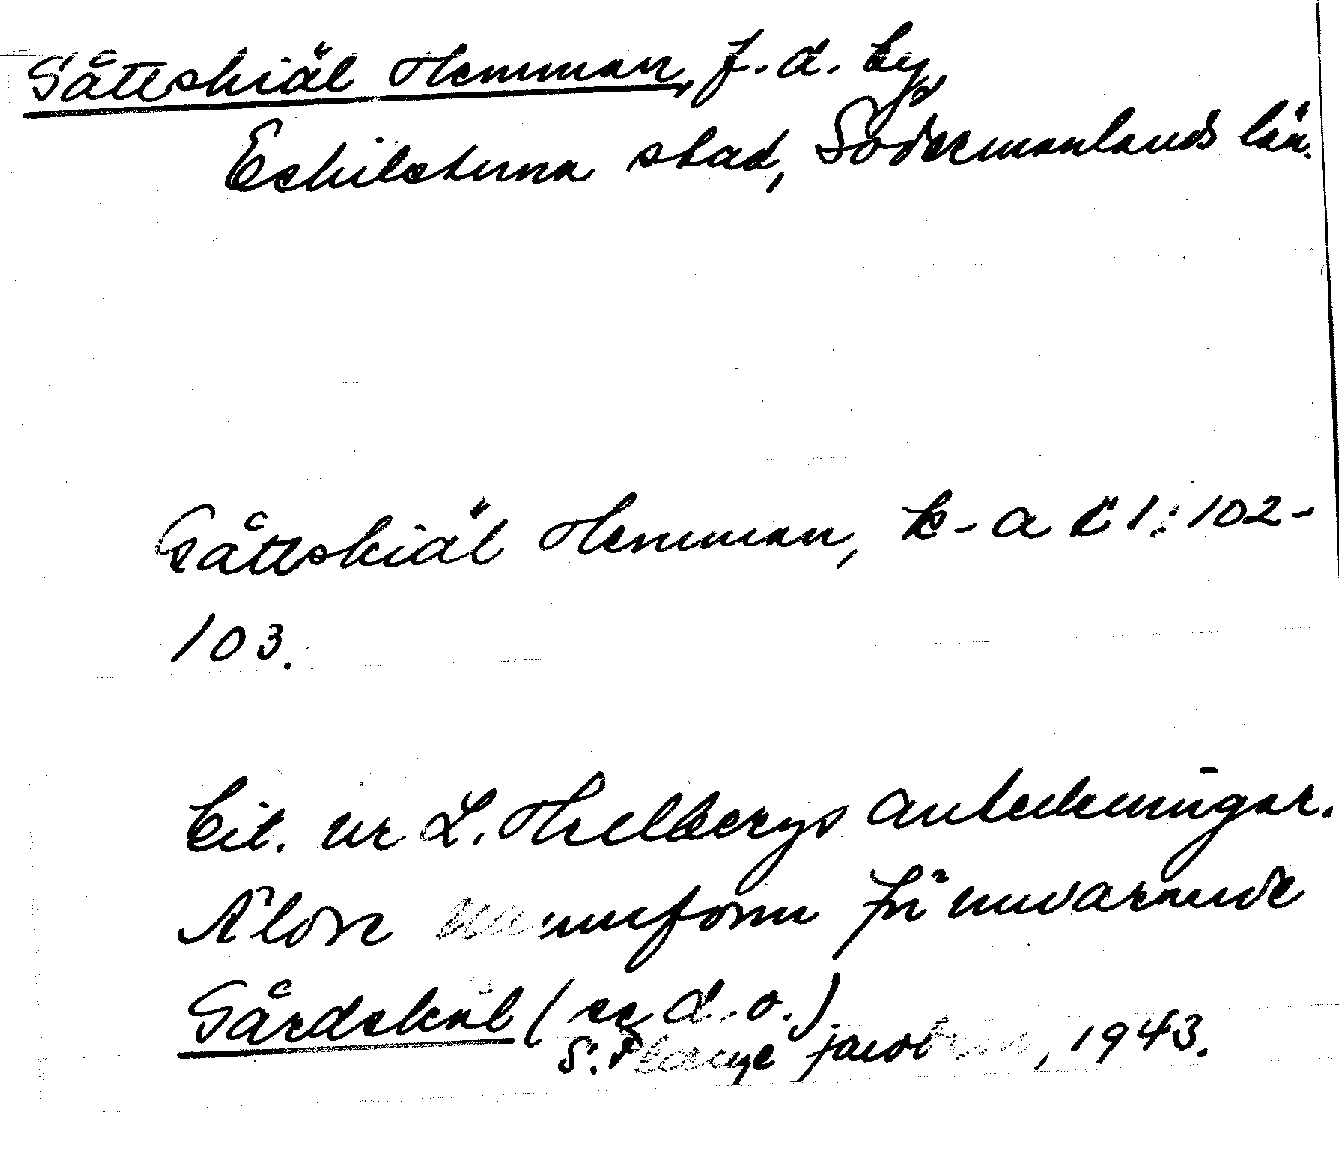 Gåtteskiäl Hemman, f.d. by,
Eskilstuna stad, Södermanlands län.
Gåtteskiäl Hemman, k-a C 1:102-
103.
Cit. ur L. Hellbergs anteckningar.
Äldre namnform för nuvarande
Gårdskäl (se d.o.)
S. Plange Jacobson, 1943.